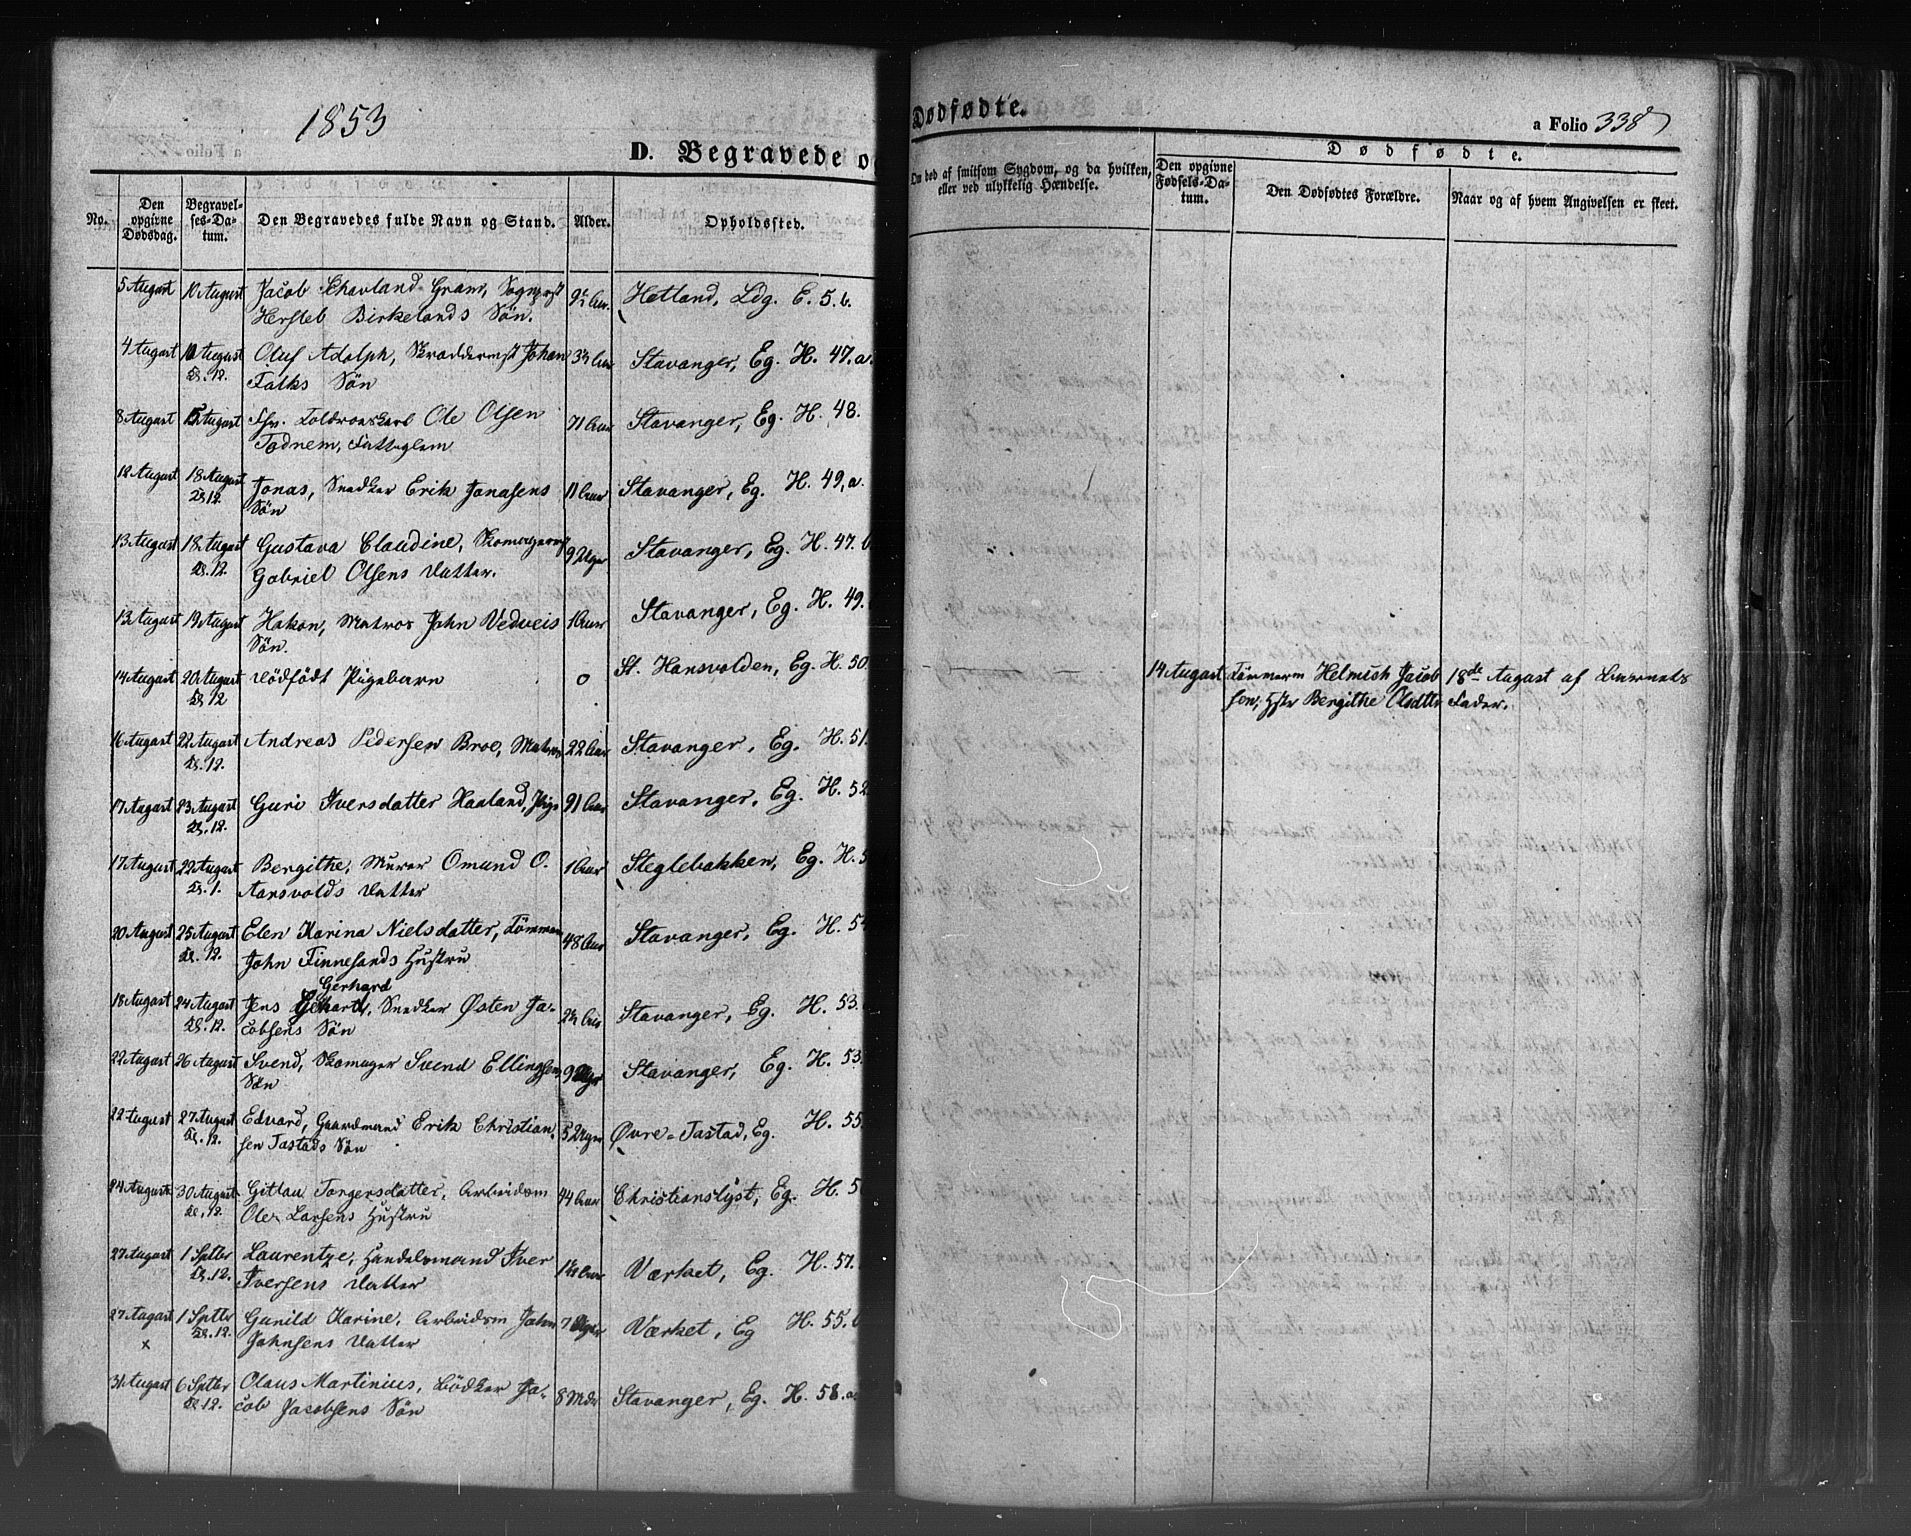 1853
D. Begravede o
Dødfødte.
a Folio 338
No.
Den opgivne Dødsdag.
Begravelses-Datum.
Den Begravedes fulde Navn og Stand.
Alder.
Opholdssted.
Om død af smitsom Sygdom, og da hvilken, eller ved ulykkelig Hændelse.
Dødfødte.
Den opgivne Fødsels-Datum.
Den Dødfødtes Forældre.
Naar og af hvem Angivelsen er skeet.
5 August 10 August Jacob Schavland Gram, Sognepst Hetland, Ldg. E. 5. b.
Hersleb Birkelands Søn.
4 August August Oluf Adolph, Skræddermst Johan 3½ Aar Stavanger, Eg. H. 47. a.
Kl. 12. Falks Søn
8 August August Toldroerskarl Ole Olsen 71 Aar Stavanger, Eg. H. 48.
Todnem, Fattiglem
12 August 18 August Jonas, Snedker Erik Jonasens 11 Aar Stavanger, Eg. H. 49, a.
Kl 12. Søn
13 August 18 August Gustava Claudine, Skomagermst 9 Uger Stavanger, Eg. H. 47. b
Kl. 12. Gabriel Olsens Datter.
13 August 19 August Hakon, Matros John Vedveis 1 Aar Stavanger, Eg. H. 49.
Søn.
14 August 20 August Dødfødt Pigebarn 0 St. Hansvolden, Eg. H. 50. 14 August Tømmerm Helmich Jacob 18de August af Barnets
Kl 12 sen, Hstr Bergithe Olsdtr Fader.
16 August 22 August Andreas Pedersen Broe, Matros 22 Aar Stavanger, Eg. H. 51.
Kl. 12.
17 August 23 August Guri Iversdatter Haaland, Pige 91 Aar Stavanger, Eg. H. 52
Kl. 12.
17 August 22 August Bergithe, Murer Omund O. 1 Aar Steglebakken, Eg. H. 5
Kl. 1. Aarsvolds Datter
20 August 25 August Elen Karina Nielsdatter, Tømmerm 48 Aar Stavanger, Eg. H. 54
Kl. 12. John Finnesands Hustru
Gerhard
18 August 24 August Jens Snedker Østen Ja- 2½ Aar Stavanger, Eg. H. 53.
Kl. 12. cobsens Søn
22 August 26 August Svend, Skomager Svend Ellingsens 9 Stavanger, Eg. H. 53.
Søn
22 August 27 August Edvard, Gaardmand Erik Christian- 5 Uger Øvre-Tastad, Eg. H. 55
Kl. 12. sen Tastads Søn
24 August 30 August Gitlau Torgersdatter, Arbeidsm 44 Aar Christianslyst, Eg. H. 5
Kl. 12. Ole Larsens Hustru
27 August 1 Sptbr Laurentze, Handelsmand Iver 1½ Aar Værket, Eg. H. 57.
Kl. 12. Iversens Datter
27 August 1 Sptbr Gunild Karine, Arbeidsm John 7 Værket, Eg H. 55. b
x Kl. 12. Johnsens Datter
31 August 6 Sptbr Olaus Martinius, Bødker Ja- 8 Mdr Stavanger, Eg. H. 58. a.
Kl 12. cob Jacobsens Søn